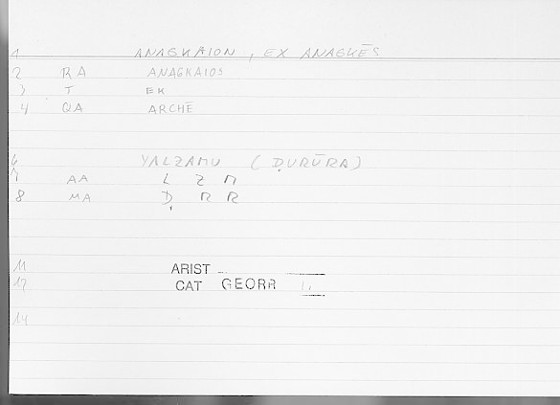 1 ANAGKAION, EX ANAGKĒS
2 RA ANAGKAIOS
3 T EK
4 QA ARCHĒ
6 YALZAMU (ḌURŪRA)
7 AA L Z M
8 MA Ḍ R R
11 ARIST
12 CAT GEORR
14